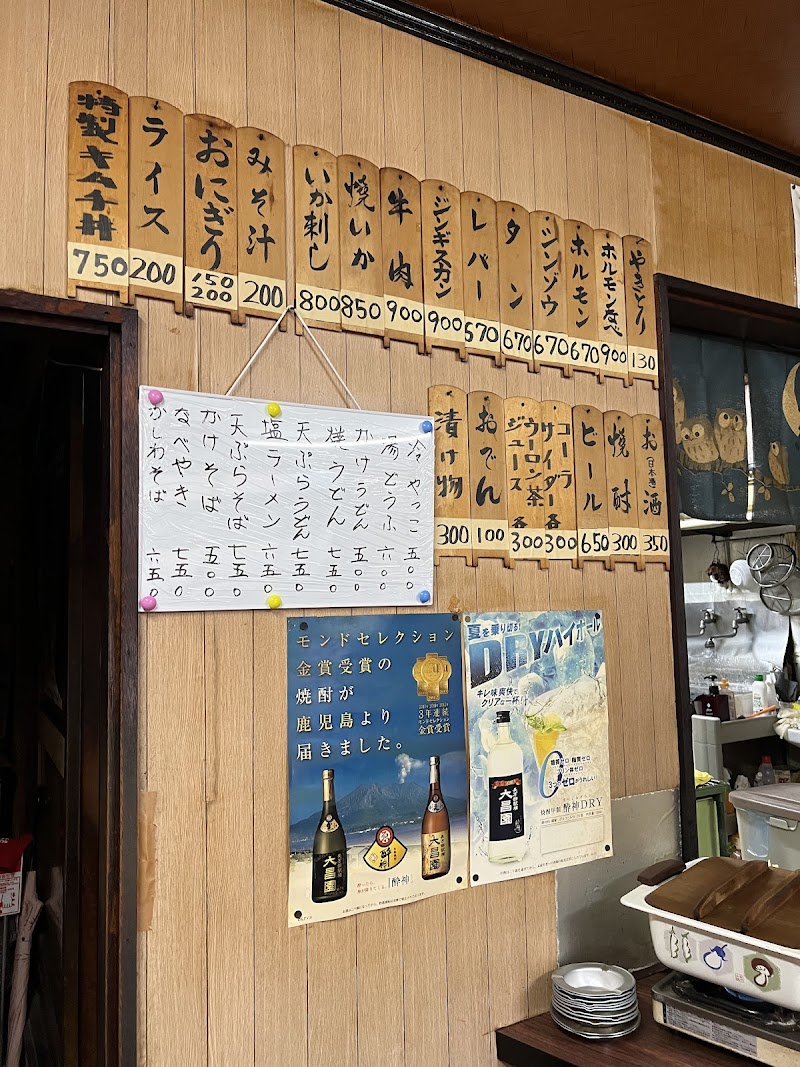 やきとり 130
ホルモンなべ 900
ホルモン 670
シンゾウ 670
タン 670
レバー 670
ジンギスカン 900
牛肉 900
焼いか 850
いか刺し 800
みそ汁 200
おにぎり 150 200
ライス 200
特製キムチ丼 750
お酒(日本酒) 350
焼酎 300
ビール 650
コーラ サイダー各 300
ウーロン茶 ジュース各 300
おでん 100
漬け物 300
冷やっこ 五〇〇
湯どうふ 六〇〇
かけうどん 五〇〇
焼うどん 七五〇
天ぷらうどん 七五〇
塩ラーメン 六五〇
天ぷらそば 七五〇
かけそば 五〇〇
なべやき 七五〇
かしわそば 六五〇
モンドセレクション
金賞受賞の
焼酎が
鹿児島より
届きました。
3年連続
モンドセレクション
金賞受賞
大昌園
酔神
大昌園
「酔神」
夏を乗り切る!
DRYハイボール
キレ味爽快で
クリアな一杯!
大昌園
糖質ゼロ
プリン体ゼロ
3つのゼロがうれしい!
酔神DRY